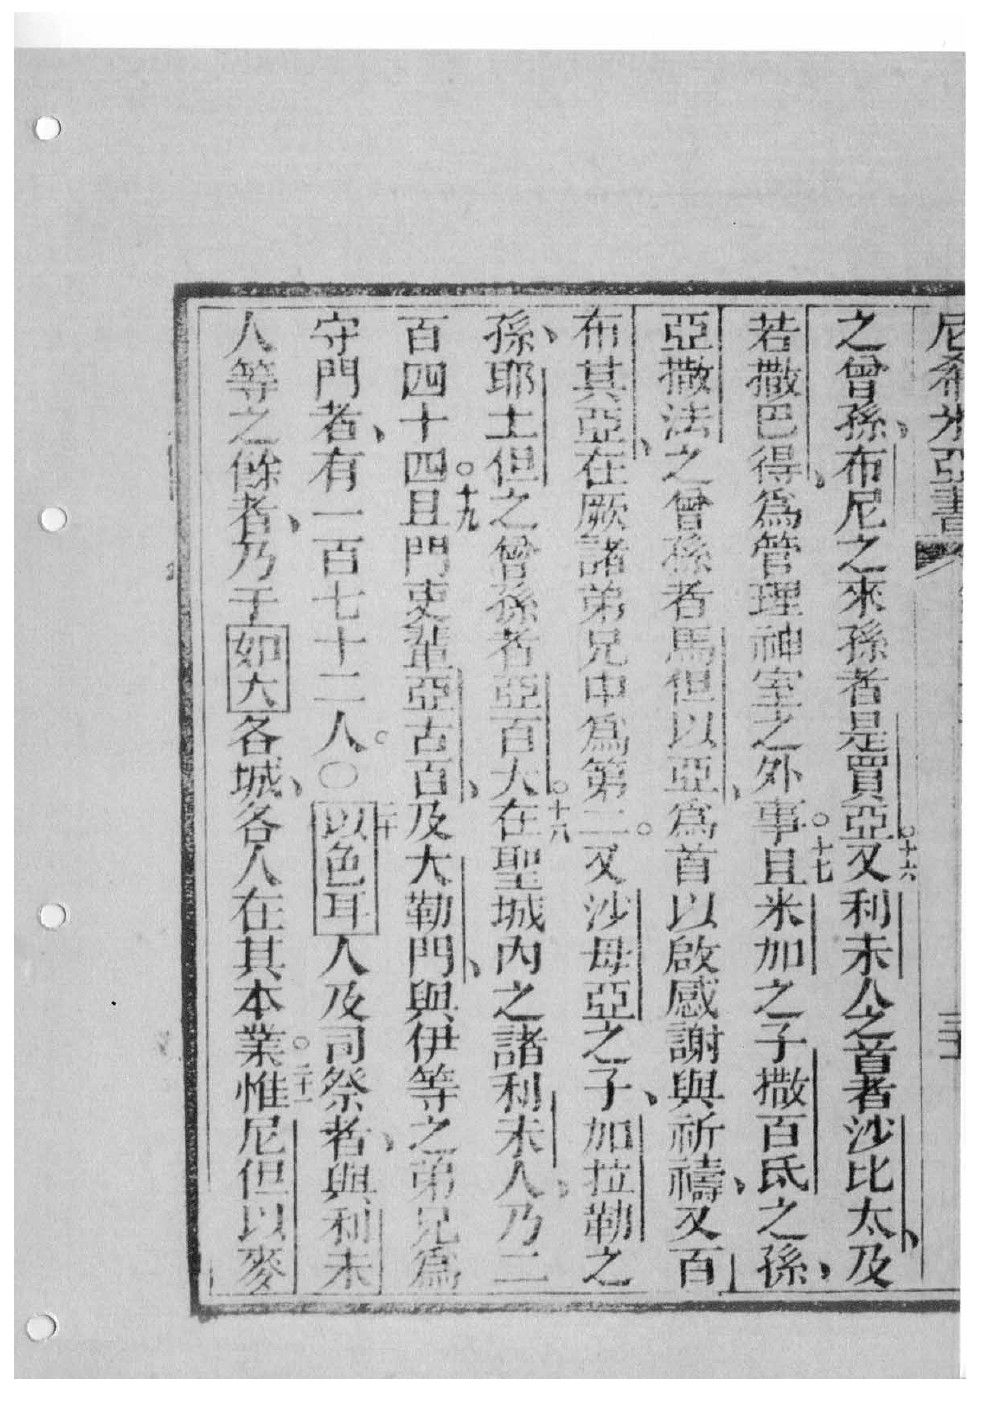 尼希米亞書
之曾孫、布尼之來孫者是買亞。十六又利未人之首者沙比太、及
若撒巴得、爲管理神室之外事。十七且米加之子撒百氐之孫、
亞撒法之曾孫者馬但以亞、爲首以啟感謝與祈禱、又百
布其亞、在厥諸弟兄中爲第二。又沙母亞之子、加拉勒之
孫、耶土但之曾孫者亞百大。十八在聖城內之諸利未人、乃二
百四十四。十九且門吏輩亞古百、及大勒門、與伊等之弟兄爲
守門者、有一百七十二人。○二十以色耳人及司祭者、與利未
人等之餘者、乃于如大各城、各人在其本業。二十一惟尼但以麥